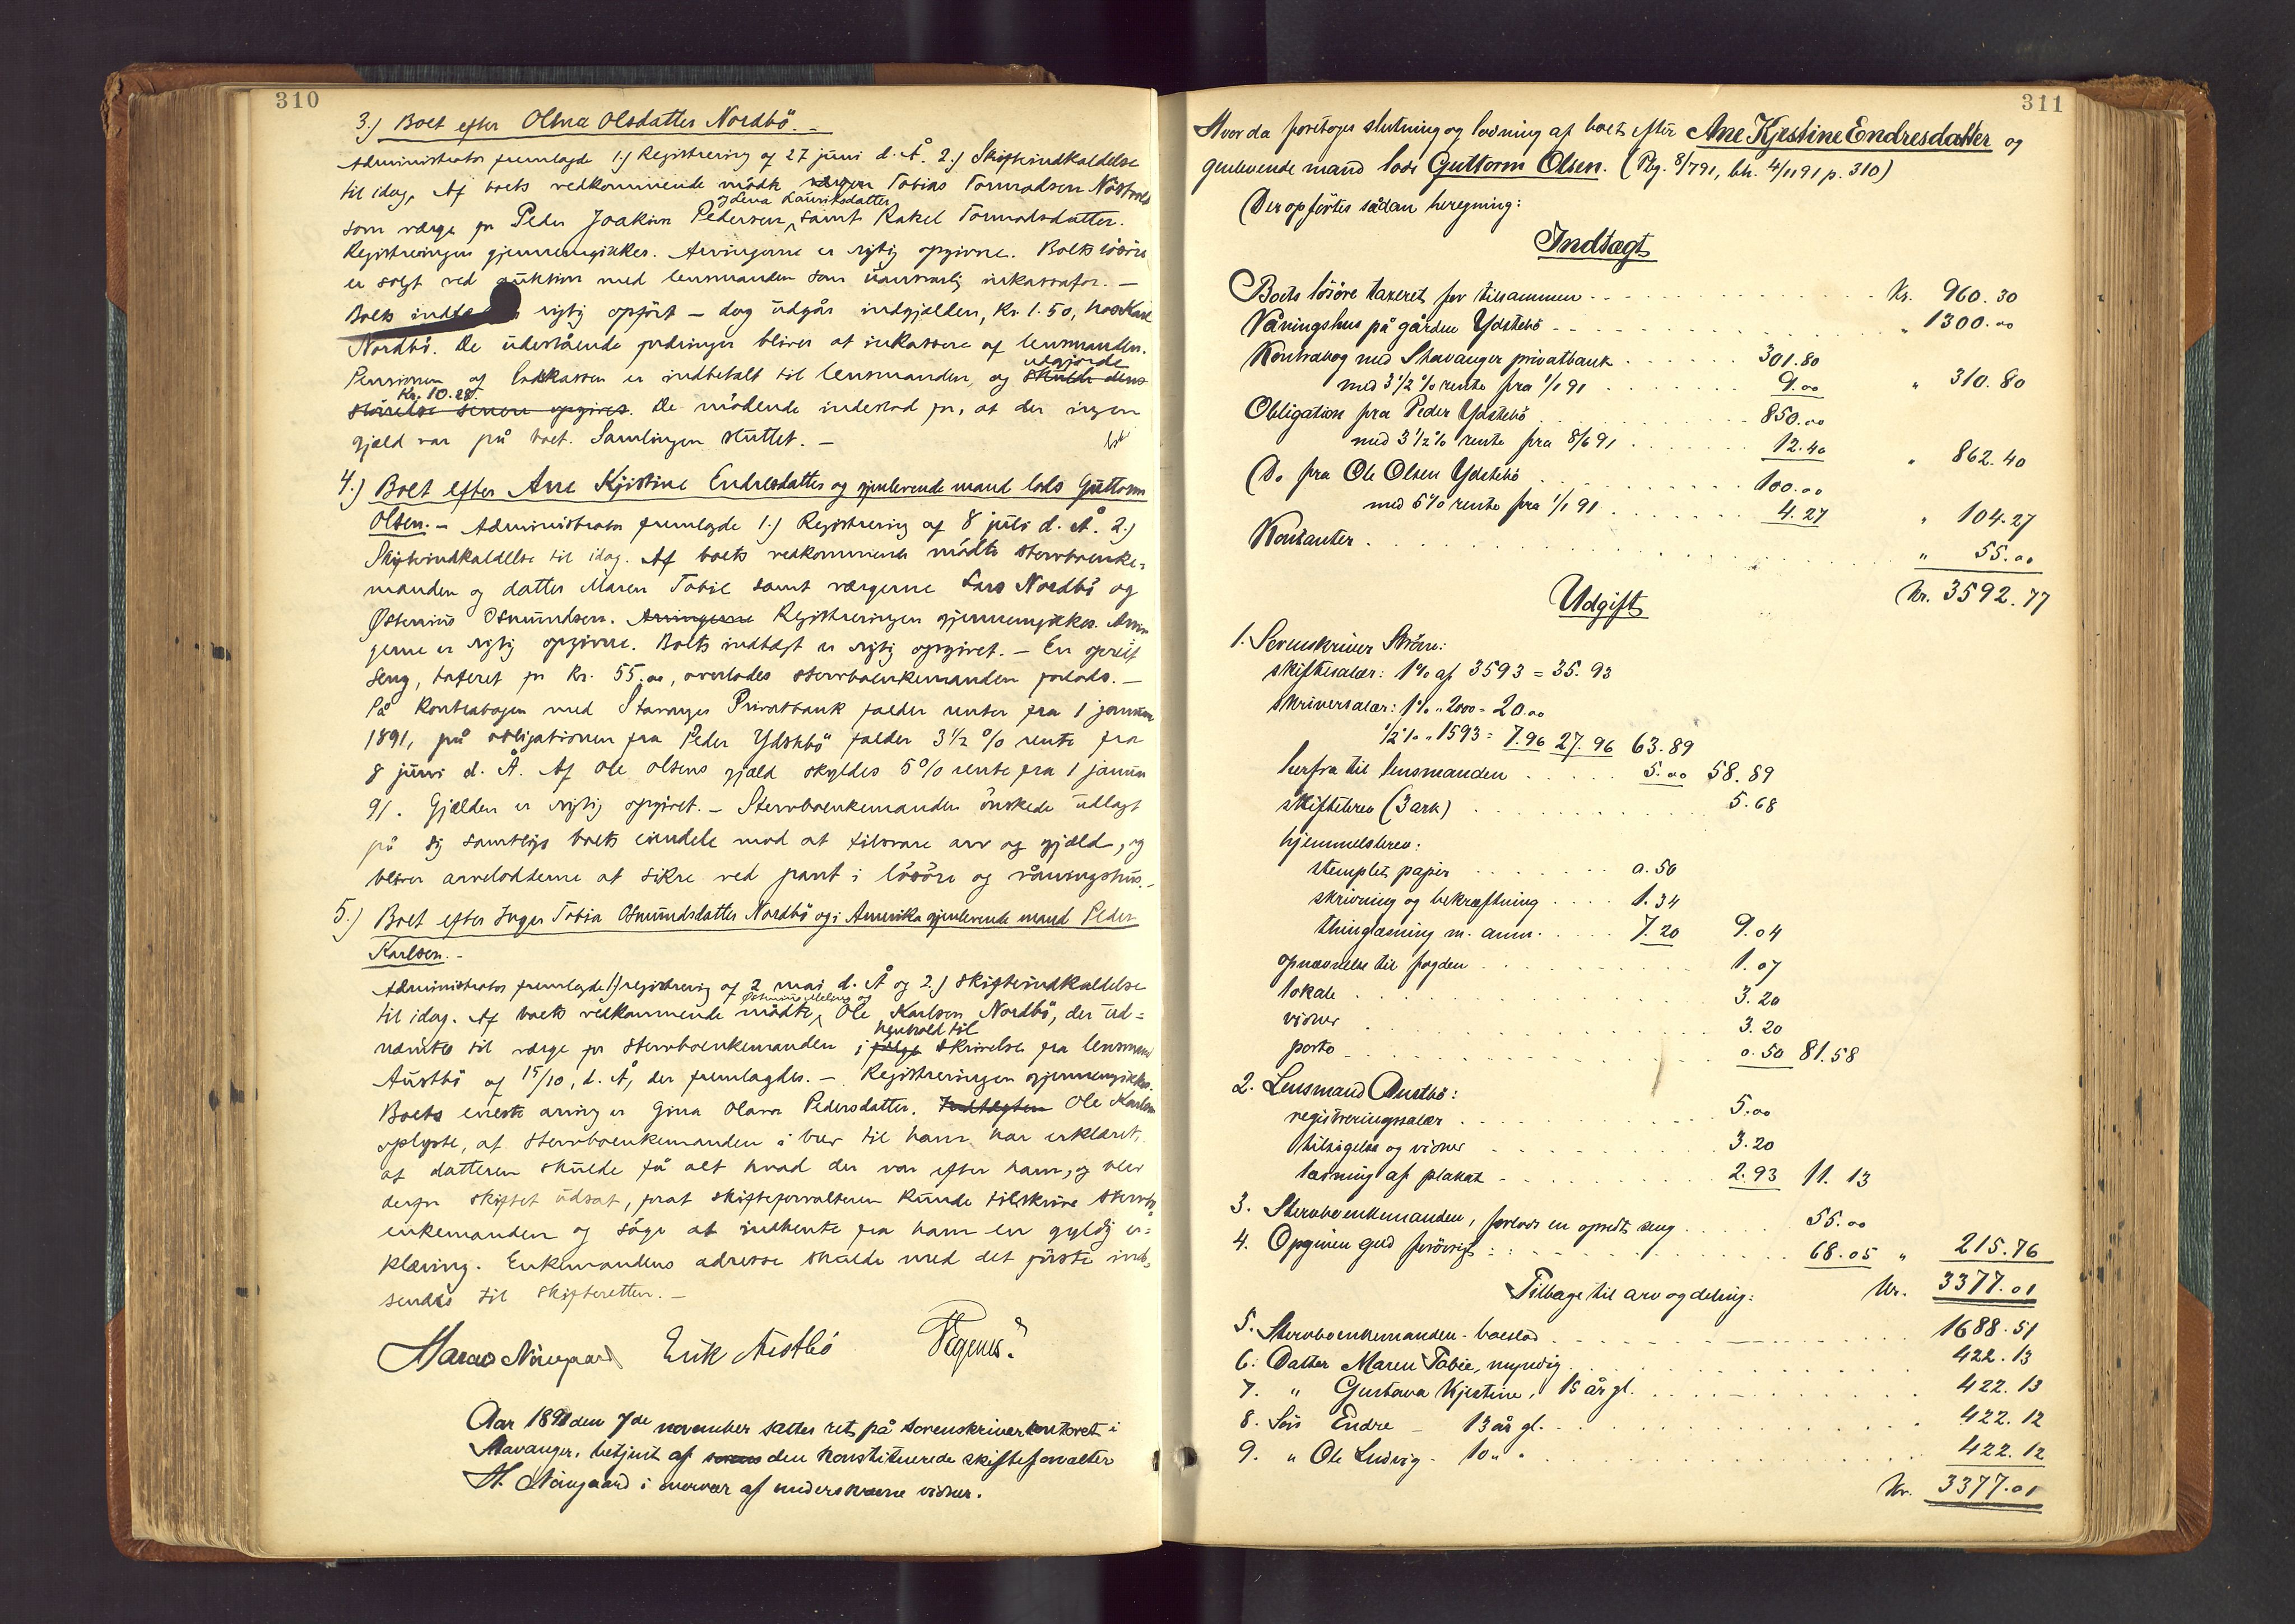 310
3.) Boet efter Olena Olsdatter Nordbö. –
Administrator fremlagde 1.) Registrering af 27 juni d. A. 2.) Skifteindkaldelse
til idag. Af boets vedkommende mödte værgen Tobias Tormodsen
og Lena Lauritsdatter
som værge for Peder Joakim Pedersen, samt Rakel Tormodsdatter.
Registreringen gjennemgikkes. Arvingerne er rigtig opgivne. Boets lösöre
er solgt ved auktion med lensmanden som uansvarlig inkassator. –
Boets rigtig opfört – dog udgår indgjælden, Kr. 1.50, hos
Nordbö. De udestående fordringer bliver at inkassere af lensmanden.
udgjorde
Pensionen af er indbetalt til lensmanden, og skulde dens
Kr. 10.28.
störrelse senere opgives. De mödende indestod for, at der ingen
gjæld var på boet. Samlingen sluttet. –
4.) Boet efter Ane Kjistine Endresdatter og gjenlevende mand lods Guttorm
Olsen. – Administrator fremlagde 1.) Registrering af 8 juli d. A. 2.)
Skifteindkaldelse til idag. Af boets vedkommende mödte stervboenke-
manden og datter Maren Tobie samt værgerne Lars Nordbö og
Østenius Osmundsen. Arvingerne Registreringen gjennemgikkes. Arvin
gerne er rigtig opgivne. Boets indtægt er rigtig opgivet. – En opredt
seng, taxeret for Kr. 55.00, overlodes stervboenkemanden forlods. –
På Kontrabogen med Stavanger Privatbank falder renter fra 1 januar
1891, på obligationen fra Peder Ydstebö falder 3½ % rente fra
8 juni d. A. Af Ole Olsens gjæld skyldes 5% rente fra 1 januar
91. Gjælden er rigtig opgivet. – Stervboenkemanden önskede udlagt
på sig samtlige boets eiendele mod at tilsvare arv og gjæld, og
bliver arvelodderne at sikre ved pant i lösöre og våningshus. –
5.) Boet efter Inger Tobia Osmundsdatter Nordbö og i Amerika gjenlevende mand Peder
Karlsen. –
Administrator fremlagde 1.) registrering af 2 mai d. A og 2.) skifteindkaldelse
til idag. Af boets vedkommende mödte, Ole Karlsen Nordbö, der ud-
henhold til
nævntes til værge for stervboenkemanden i følge skrivelse fra lensmand
Austbö af 15/10, d. A, der fremlagdes. – Registreringen gjennemgikkes.
Boets eneste arving er Gina Olava Pedersdatter. Indtægten Ole Karlsen
oplyste, at stervboenkemanden i brev til ham har erklæret,
at datteren skulde få alt hvad der var efter ham, og blev
derfor skiftet udsat, forat skifteforvalteren kunde tilskrive stervbo-
enkemanden og söge at indhente fra ham en gyldig er-
klæring. Enkemandens adresse skulde med det förste ind-
sendes til skifteretten. –
Nörregaard Erik Austbö
Aar 1891 den 7de november sattes ret på sorenskriverkontoret i
Stavanger, betjent af den konstituerede skifteforvalter
Nörregaard i overvær af underskrevne vidner.
311
Hvorda foretoges slutning og lodning af boet efter Ane Kjestine Endresdatter og
gjenlevende mand lods Guttorm Olsen. (Reg. 8/7 91, beh. 4/11 91 p. 310)
Der opförtes sådan beregning:
Indtægt
Boets lösöre taxeret for tilsammen Kr. 960.30
Våningshus på gården Ydstebö " 1300.00
Kontrabog med Stavanger privatbank 301.80
med 3 1/2 % rente fra 1/1 91 9.00 " 310.80
Obligation fra Peder Ydstebö 850.00
med 3 1/2 % rente fra 8/6 91 12.40 " 862.40
Do. fra Ole Olsen Ydstebö 100.00
med 5% rente fra 1/1 91 4.27 " 104.27
Kontanter " 55.00
Kr. 3592.77
Udgift
1. Sorenskriver Ström:
skiftesalær: 1% af 3593 = 35.93
skriversalær: 1% " 2000 = 20.00
1/2% " 1593 = 7.96 27.96 63.89
herfra til lensmanden 5.00 58.89
skiftebrev (3 ark) 5.68
hjemmelsbrev:
stemplet papir 0.50
skrivning og bekræftning 1.34
thinglæsning m. anm. 7.20 9.04
opnævnelse til fogden 1.07
lokale 3.20
vidner 3.20
porto 0.50 81.58
2. Lensmand Austbö:
registreringssalær 5.00
tilsigelse og vidner 3.20
læsning af plakat 2.93 11.13
3. Stervboenkemanden, forlods en opredt seng 55.00
4. Opgiven gjæld forövrigt: 68.05 " 215.76
Tilbage til arv og deling: Kr. 3377.01
5. Stervboenkemanden – boeslod 1688.51
6. Datter Maren Tobie, myndig 422.13
7. " Gustava Kjestine, 15 år gl. 422.13
8. Sön Endre – 13 år gl. 422.12
9. " Ole Ludvig – 10 " " 422.12
Kr. 3377.01